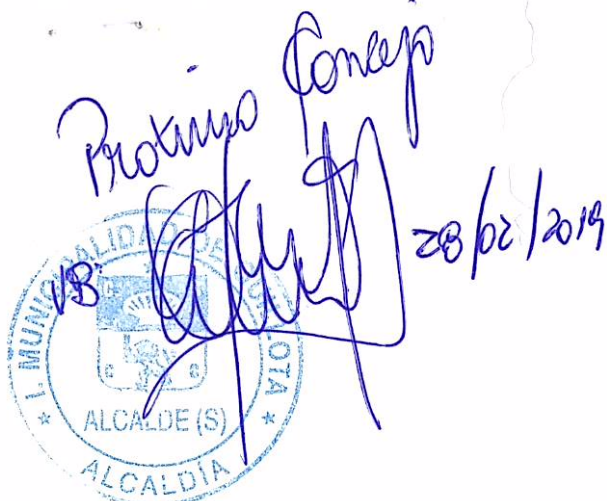 Proximo Concejo
VB°
28/02/2019
I. MUNICIPALIDAD DE QUILLOTA
ALCALDE (S)
ALCALDÍA